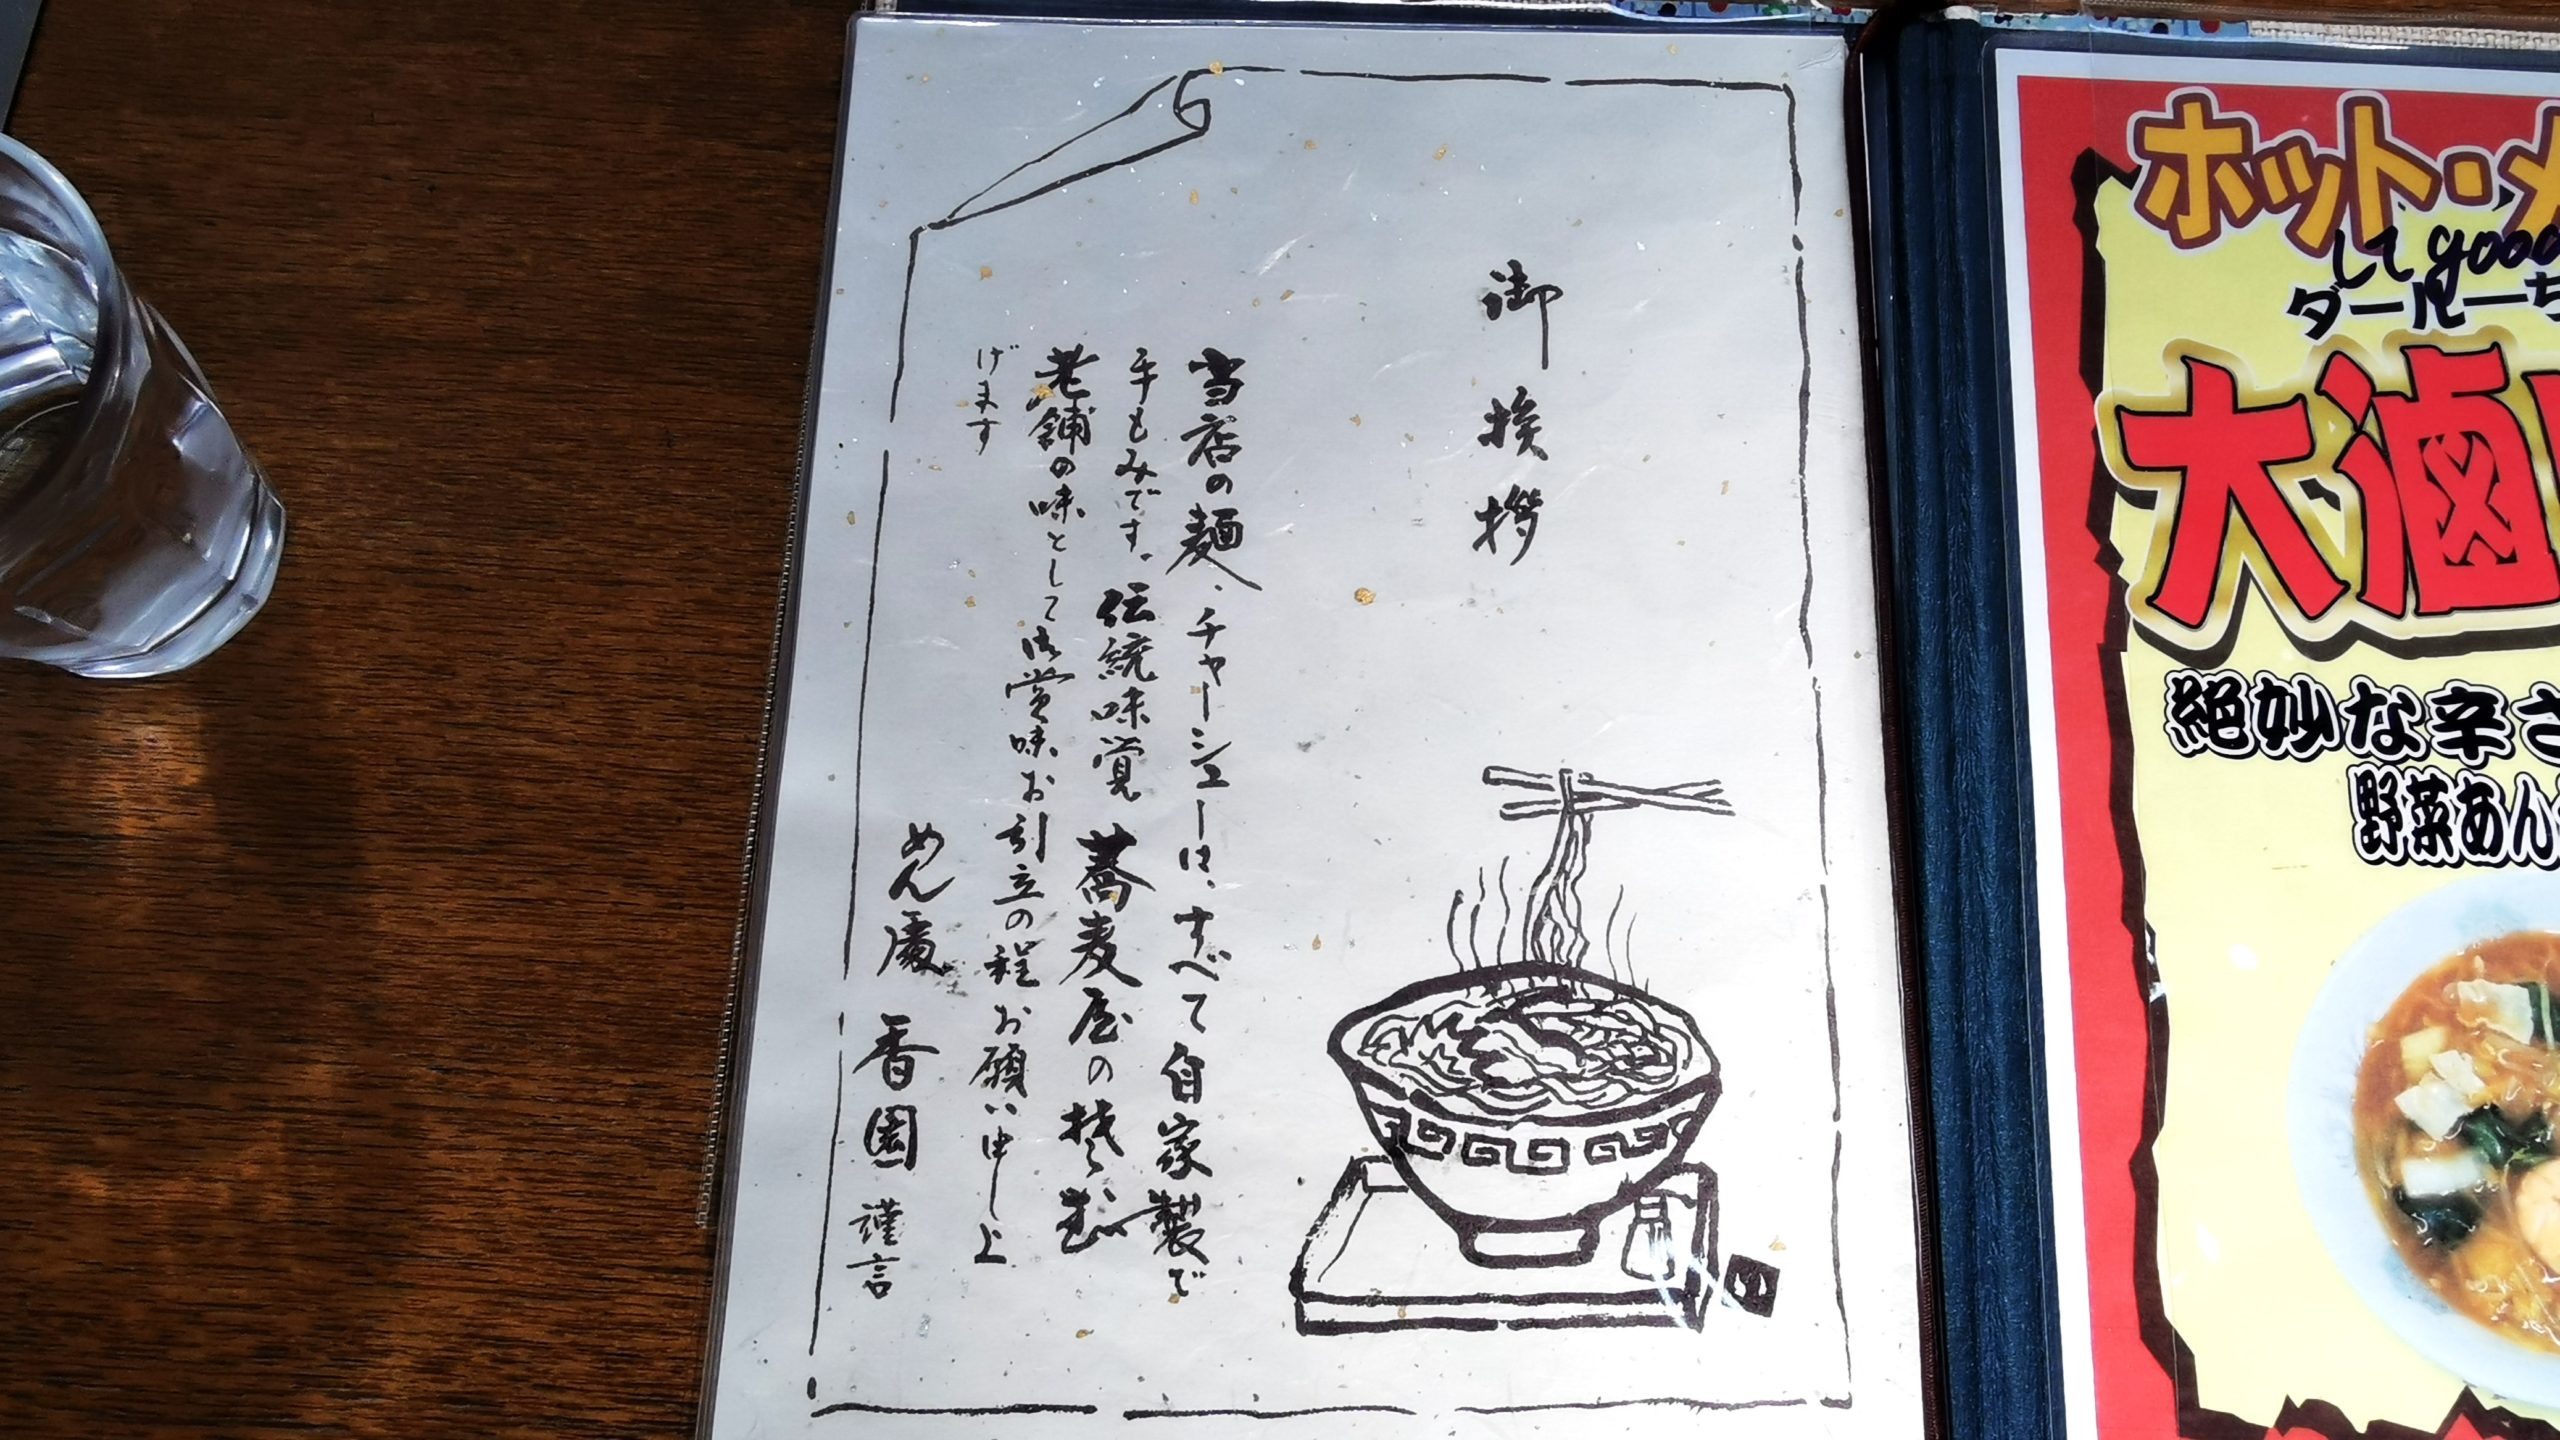 御挨拶
当店の麺、チャーシューは、すべて自家製で
手もみです。伝統味覚 蕎麦屋の
老舗の味として御賞味お引立の程お願い申し上
げます
めん 香園 謹言
ホット・メ
して good
ダールー
大滷
絶妙な辛さ
野菜あん